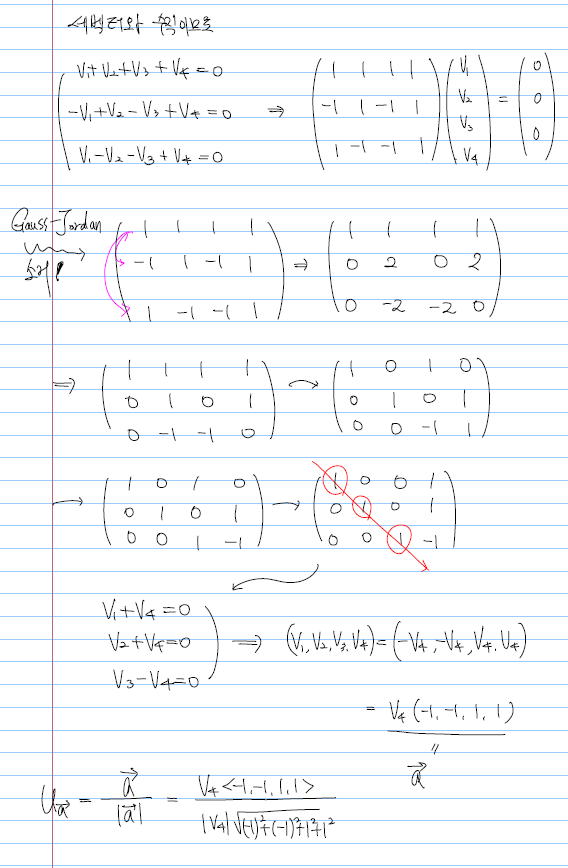 세벡터와 수직이므로
V₁+V₂+V₃+V₄=0
-V₁+V₂-V₃+V₄=0
V₁-V₂-V₃+V₄=0
⇒ ( 1 1 1 1 ; -1 1 -1 1 ; 1 -1 -1 1 ) ( V₁ ; V₂ ; V₃ ; V₄ ) = ( 0 ; 0 ; 0 )
Gauss-Jordan
소거
( 1 1 1 1 ; -1 1 -1 1 ; 1 -1 -1 1 ) ⇒ ( 1 1 1 1 ; 0 2 0 2 ; 0 -2 -2 0 )
⇒ ( 1 1 1 1 ; 0 1 0 1 ; 0 -1 -1 0 ) → ( 1 0 1 0 ; 0 1 0 1 ; 0 0 -1 1 )
→ ( 1 0 1 0 ; 0 1 0 1 ; 0 0 1 -1 ) → ( 1 0 0 1 ; 0 1 0 1 ; 0 0 1 -1 )
V₁+V₄=0
V₂+V₄=0
V₃-V₄=0
⇒ (V₁,V₂,V₃,V₄)=(-V₄,-V₄,V₄,V₄)
= V₄(-1,-1,1,1)
"
a⃗
U_a⃗ = a⃗ / |a⃗| = V₄<-1,-1,1,1> / |V₄|√(-1)²+(-1)²+1²+1²